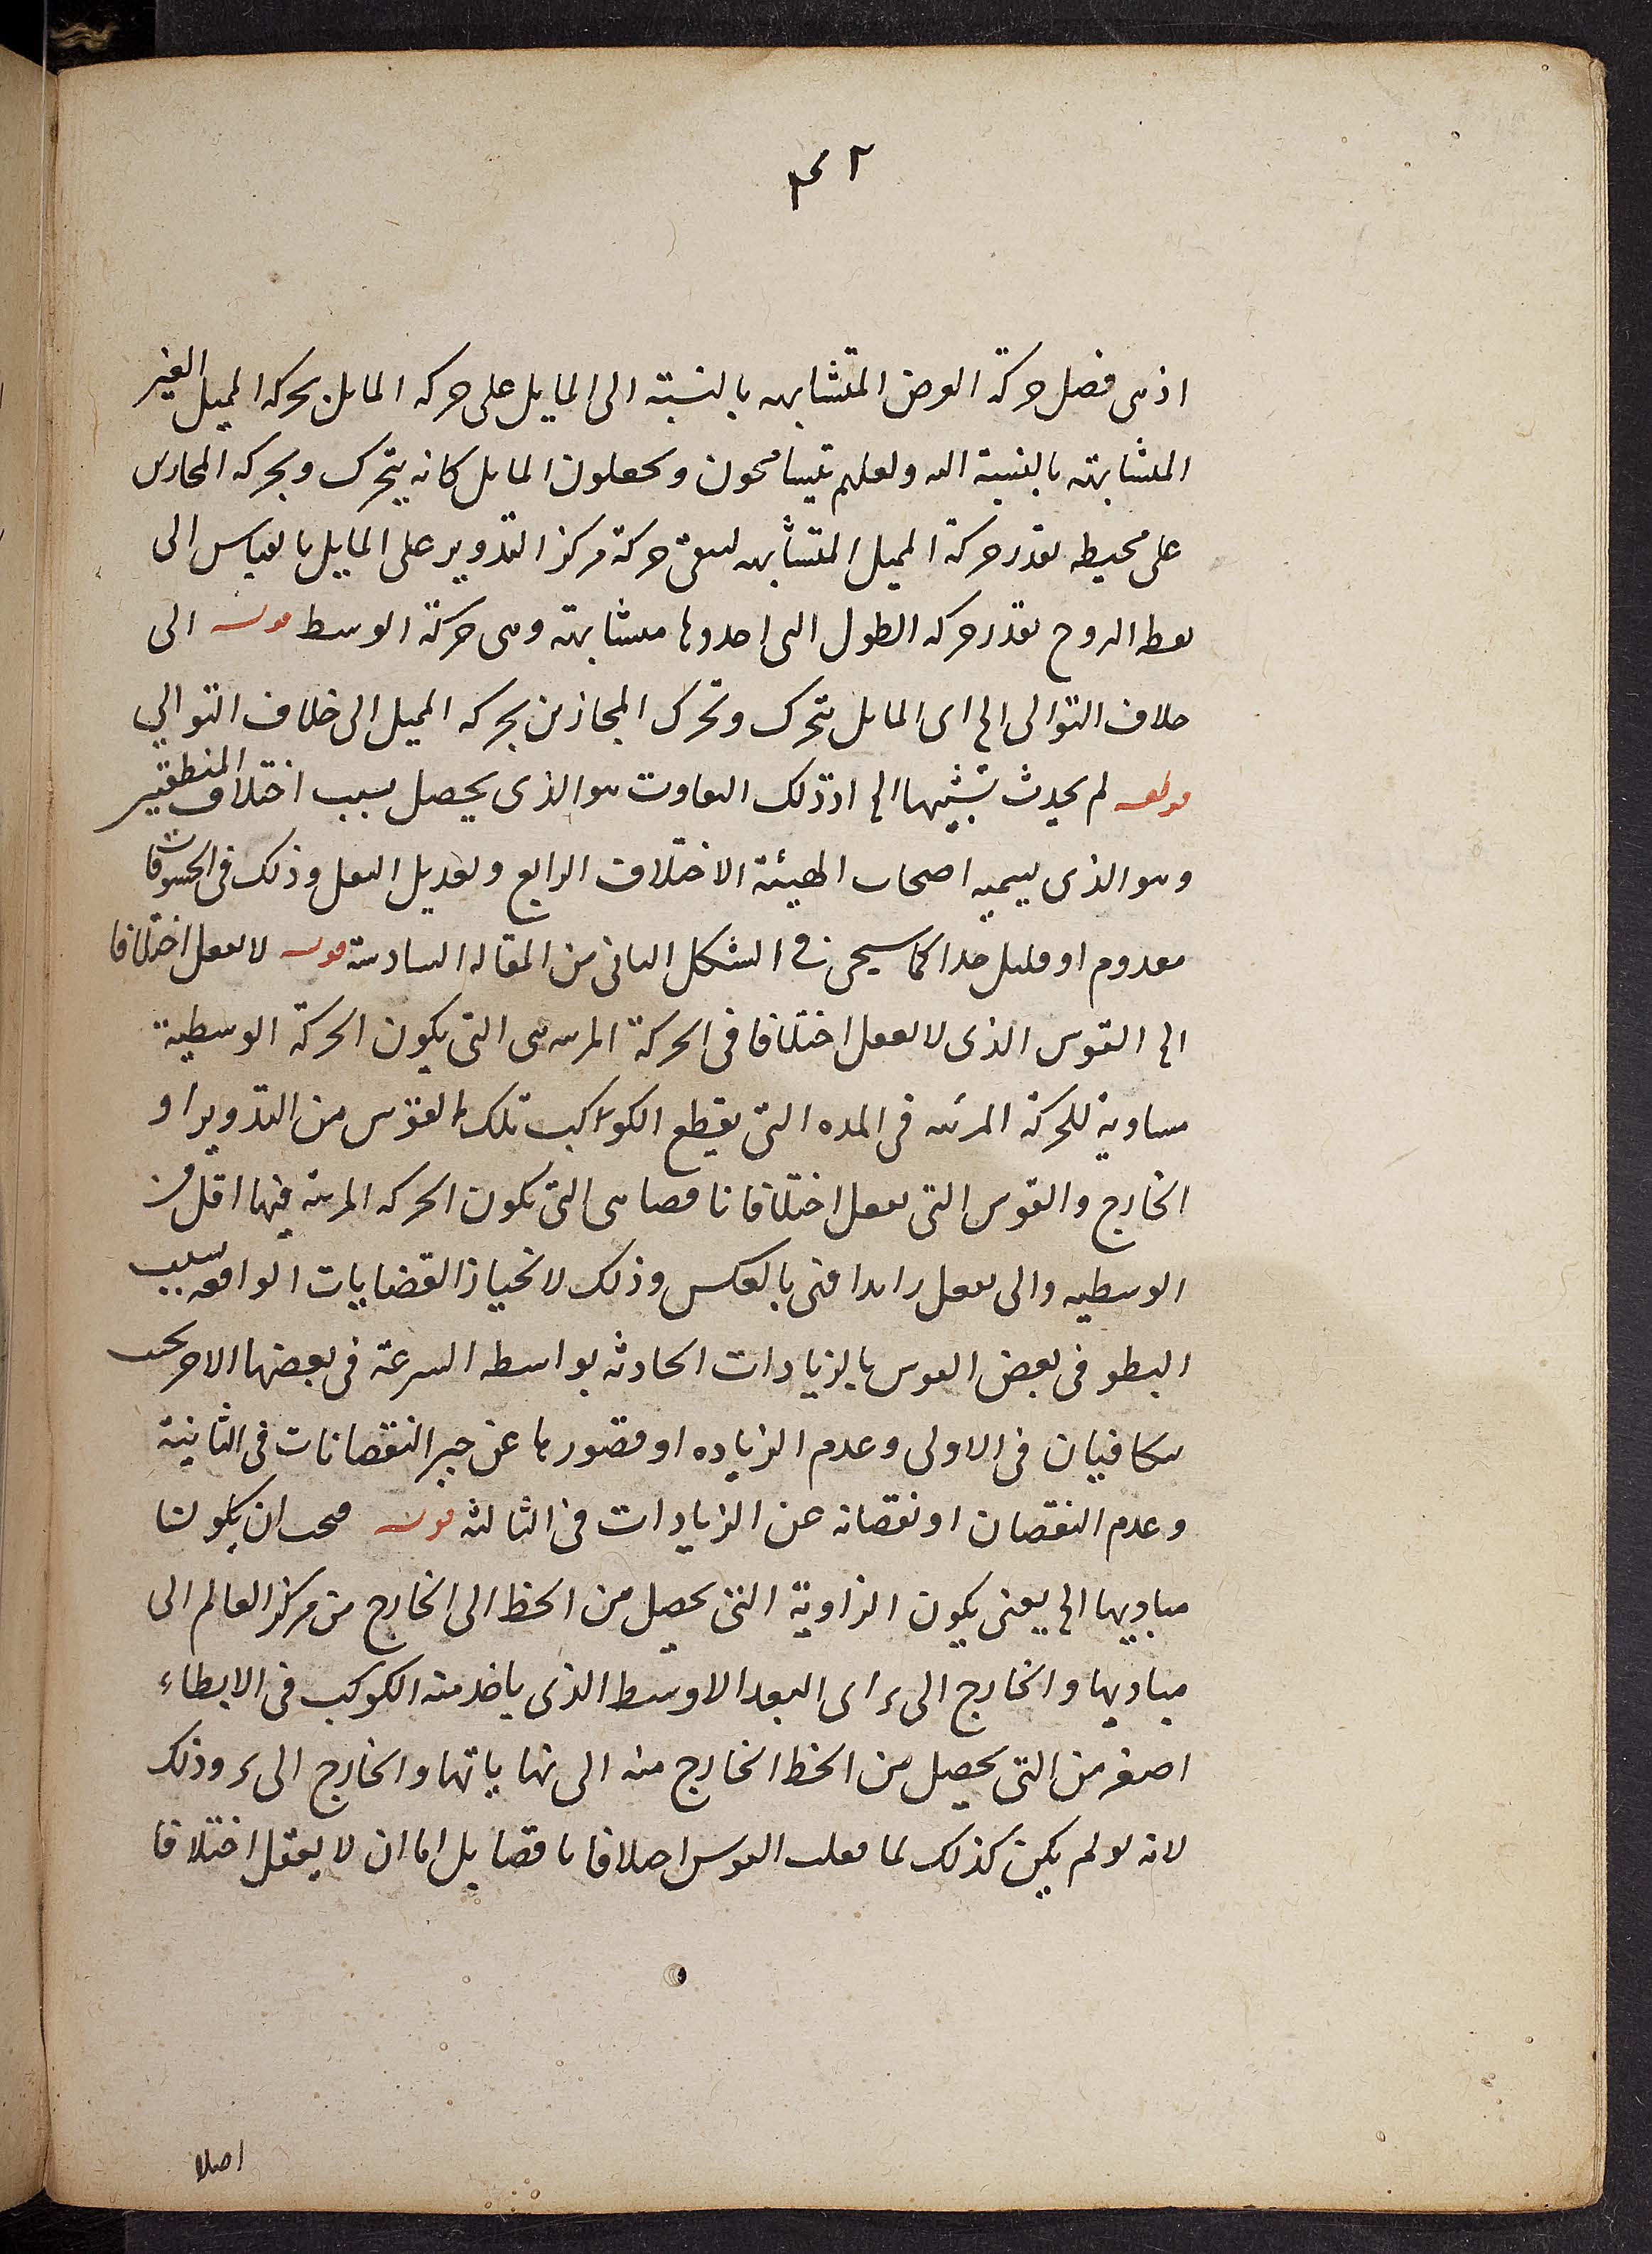 اذ هى فضل حركة العرض المتشابهه بالنسبة الى المايل على حركه المايل بحركه المميل الغير
المتشابهة بالنسبة اليه ولعلهم يتسامحون ويجعلون المايل كانه يتحرك وبحركه المحادى
على محيطه بقدر حركة المميل المتشابهه لتبقى حركة مركز التدوير على المايل بالقياس الى
نقط البروج بقدر حركه الطول التى احدوها متشابهة وهى حركة الوسط قوله الى
خلاف التوالى الخ اى المايل يتحرك وتحرك المجاز من بحركه المميل الى خلاف التوالي
قوله لم يحدث تشبيها الخ اذ ذلك التفاوت هو الذى يحصل بسبب اختلاف المنطقتين
وهو الذى يسميه اصحاب الهيئة الاختلاف الرابع وتعديل النقل وذلك فى الخسوفات
معدوم او قليل جدا كما سيجى فى الشكل الثانى من المقاله السادسة قوله لا تفعل اختلافا
الخ القوس الذى لا تفعل اختلافا فى الحركة المرئيه هى التى يكون الحركة الوسطية
مساوية للحركة المرئيه فى المده التى يقطع الكواكب تلك القوس من التدوير او
الخارج والقوس التى تفعل اختلافا ناقصا هى التى تكون الحركه المرئية فيها اقل من
الوسطيه والتى تفعل زايدا فهى بالعكس وذلك لانحياز القضايات الواقعه بسبب
البطو فى بعض القوس بالزيادات الحادثه بواسطه السرعة فى بعضها الاخر بحيث
يتكافيان فى الاولى وعدم الزياده او قصورها عن جبر النقصانات فى الثانية
وعدم النقصان او نقصانه عن الزيادات فى الثالثه قوله فيجب ان يكون لنا
مباديها الخ يعنى يكون الزاوية التى يحصل من الخط الى الخارج من مركز العالم الى
مباديها والخارج الى ء اى البعد الاوسط الذى ياخذ منه الكوكب فى الابطاء
اصغر من التى يحصل من الخط الخارج منه الى نهاياتها والخارج الى ء وذلك
لانه لو لم يكن كذلك لما فعلت القوس اختلافا ناقصا بل اما ان لا يفعل اختلافا
اصلا